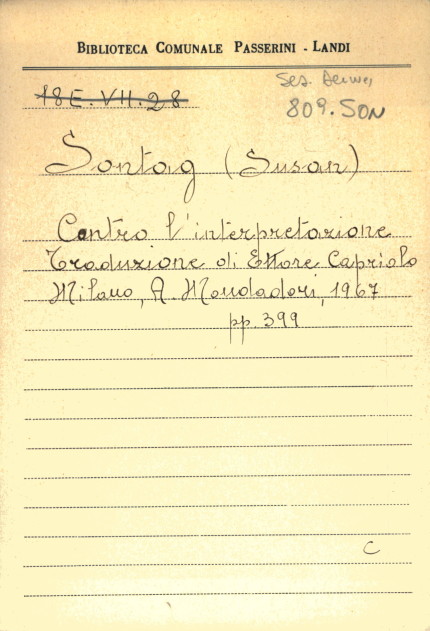 BIBLIOTECA COMUNALE PASSERINI - LANDI
18 E. VII. 28
809. SON
Sontag (Susan)
Contro l'interpretazione
Traduzione di Ettore Capriolo
Milano, A. Mondadori, 1967
pp. 399
C